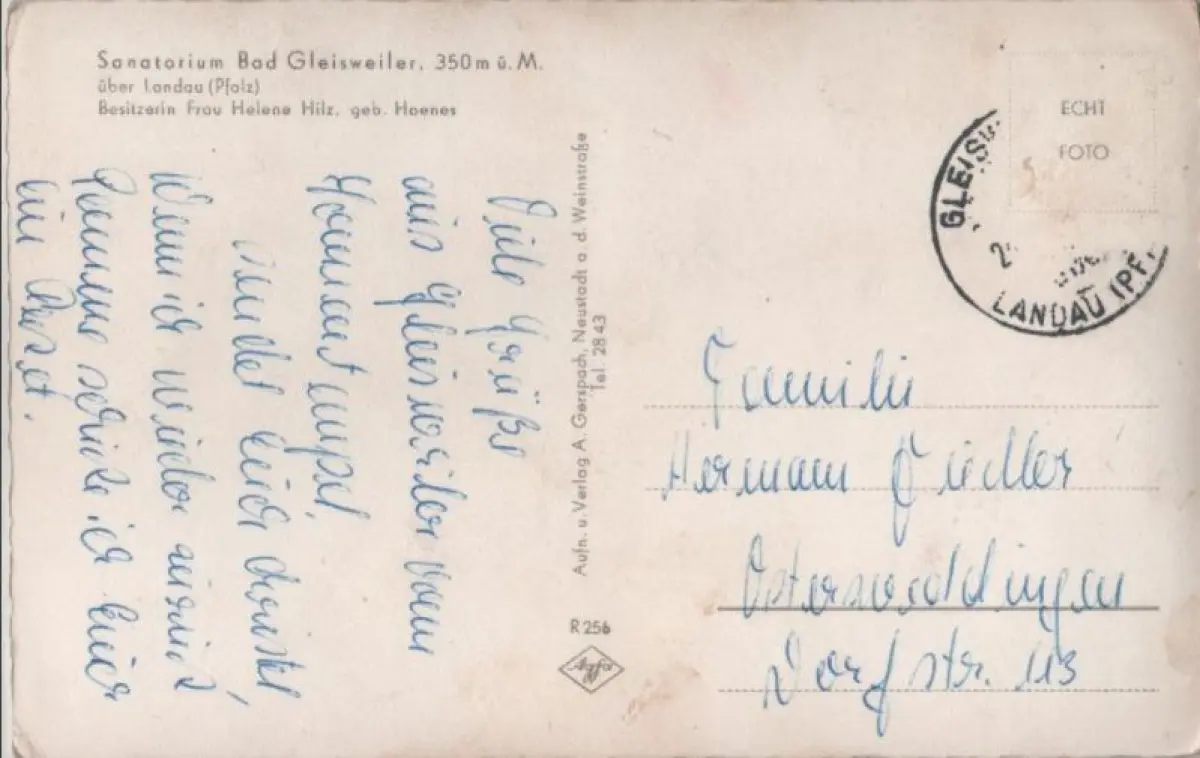 Sanatorium Bad Gleisweiler, 350 m ü. M.
über Landau (Pfalz)
Besitzerin Frau Helene Hilz, geb. Hoenes
Viele Grüße
aus Gleisweiler vom
sendet Euch
Wenn ich wieder
komme schicke ich Euer
Aufn. u. Verlag A. Gerspach, Neustadt a. d. Weinstraße
Tel. 2843
R 256
Agfa
ECHT
FOTO
GLEISW
LANDAU (PF
Familie
Hermann Fiedler
Osterweddingen
Dorfstr. 113